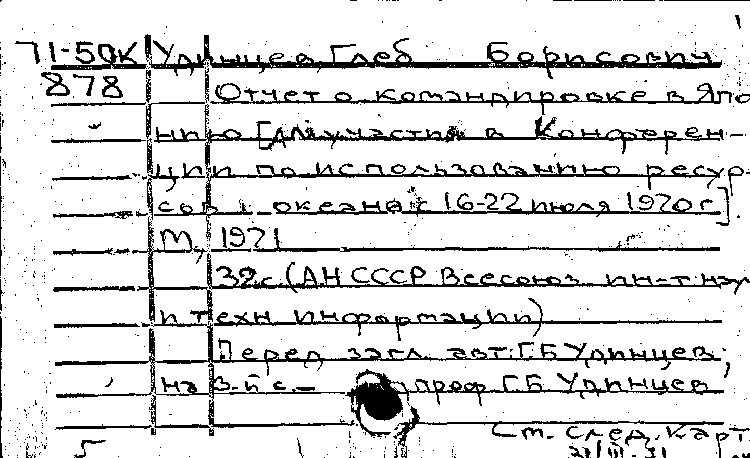 71-50К Удинцев, Глеб Борисович
878 Отчет о командировке в Япо
нию [для участия в Конферен-
ции по использованию ресур-
сов океана с 16-22 июля 1970 г].
М, 1971
32с. (АН СССР Всесоюз ин-т науч
и техн информации)
Перед загл авт: Г Б Удинцев,
на 3-й с. - проф Г Б Удинцев
См. след. карт
5